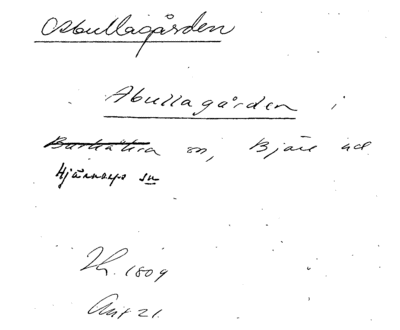 Abullagården
Abullagården i
Barkåkra sn, Bjäre hd
Hjärnarps sn
Th. 1809
Ant 21.